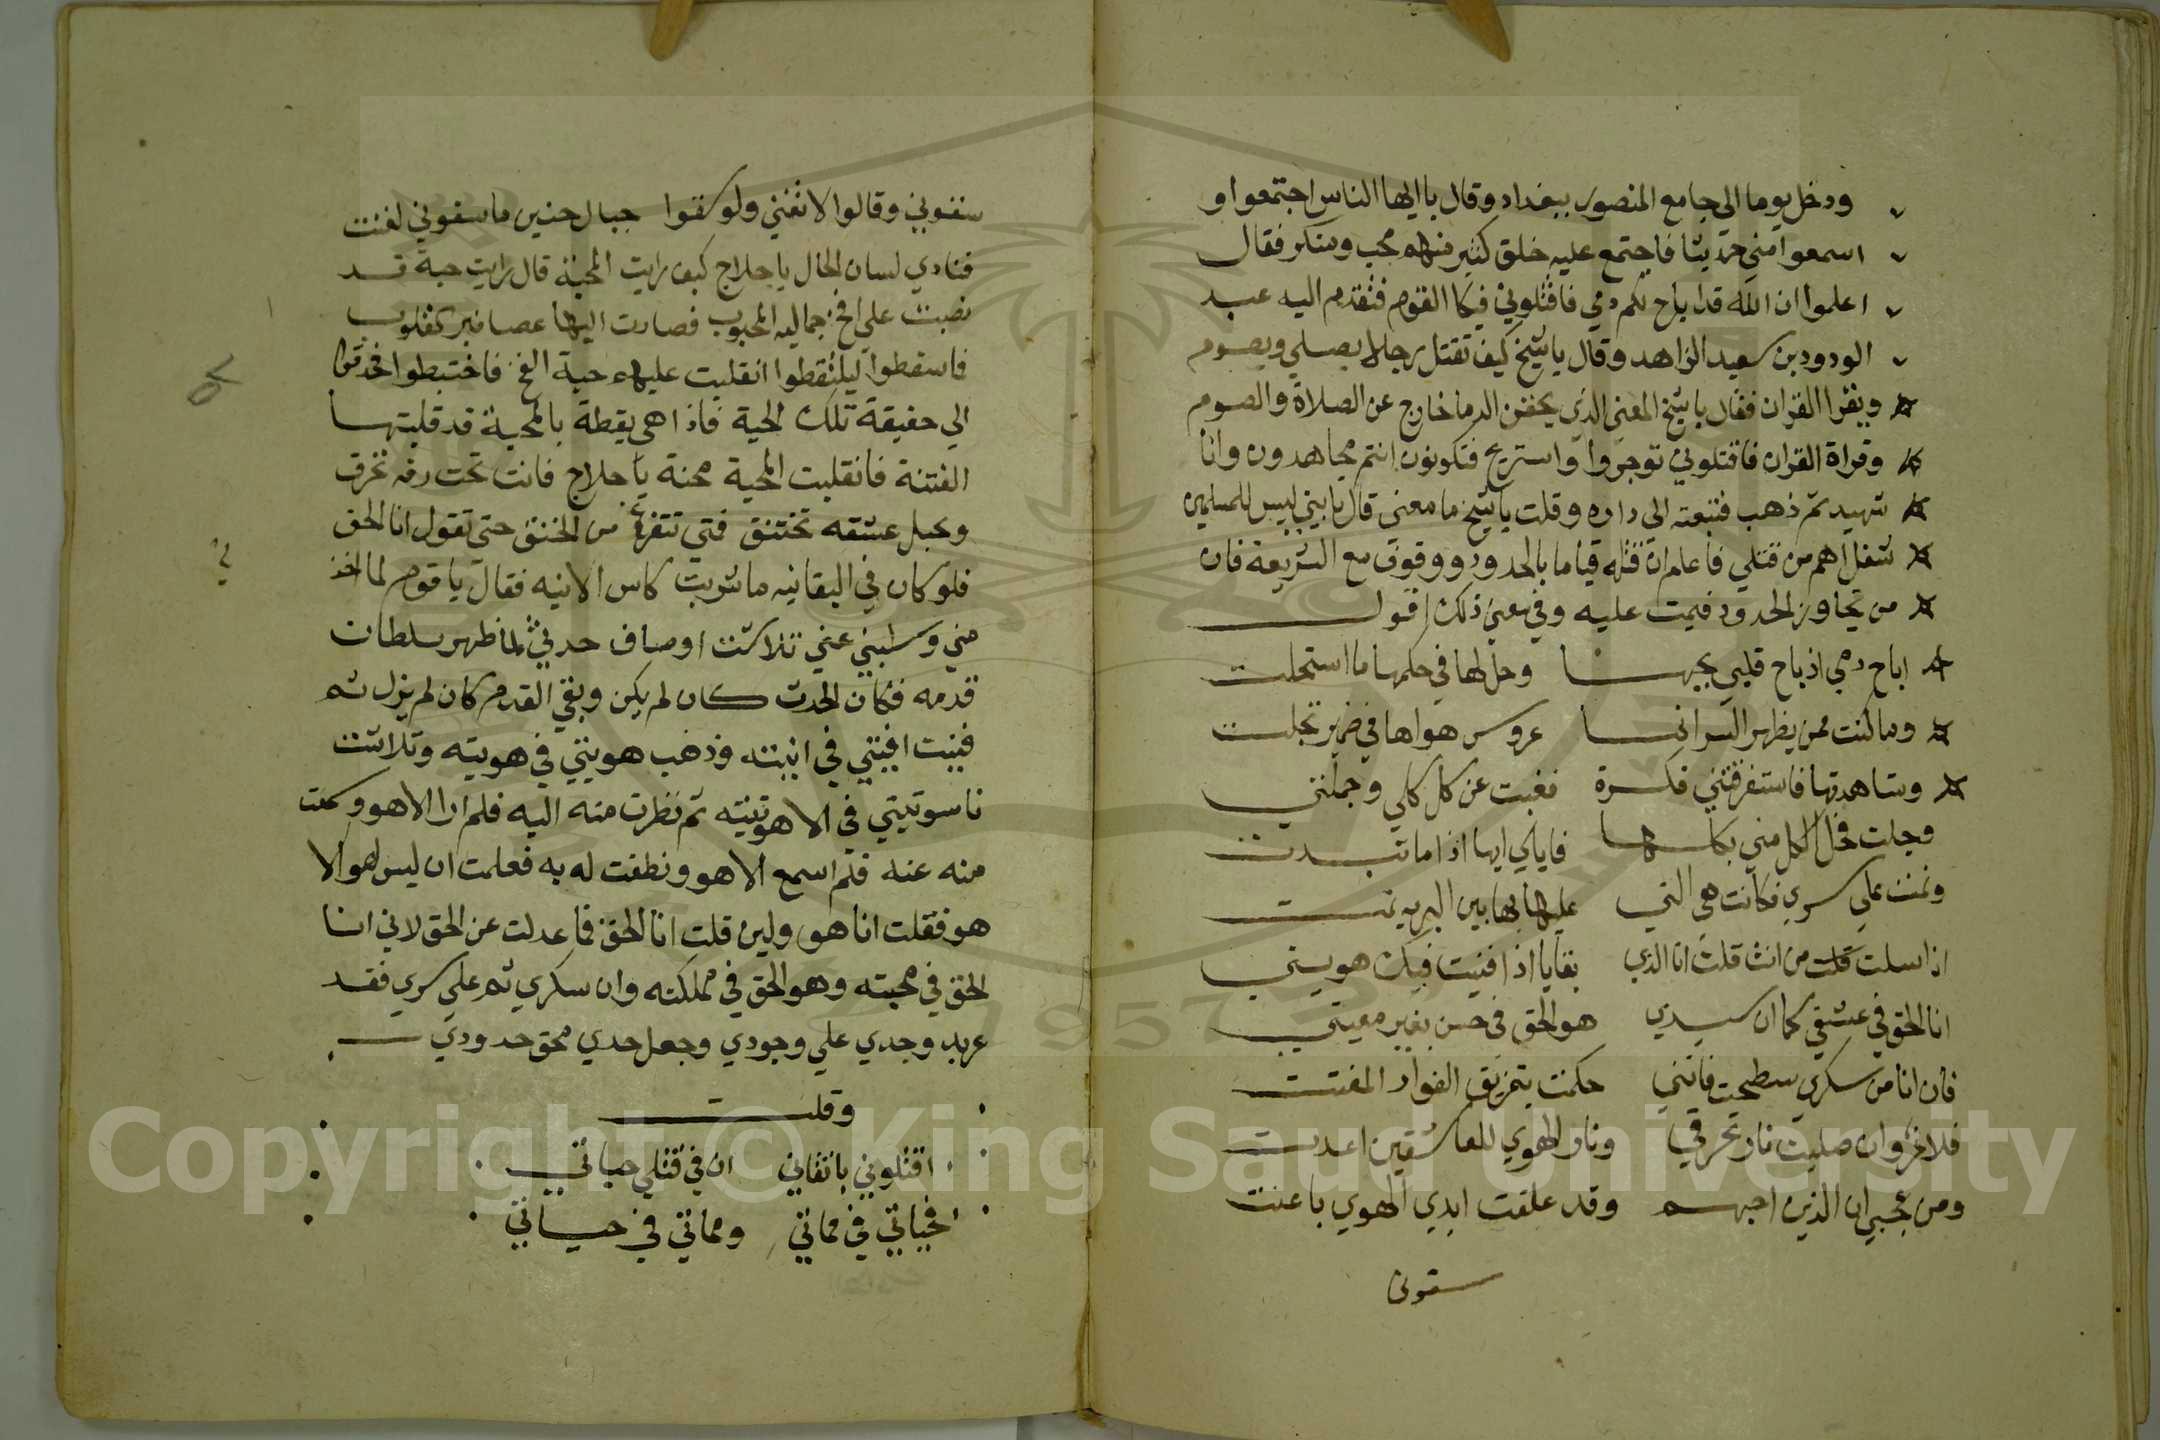 ودخل يوما الى جامع المنصور ببغداد وقال يا ايها الناس اجتمعوا و
اسمعوا مني حديثا فاجتمع عليه خلق كثير منهم محب ومنكر فقال
اعلموا ان الله قد اباح لكم دمي فاقتلوني فبكا القوم فتقدم اليه عبد
الودود بن سعيد الزاهد وقال يا شيخ كيف تقتل رجلا يصلي ويصوم
ويقرا القران فقال يا شيخ المعني الذي يحقن الدما خارج عن الصلاة والصوم
وقراة القران فاقتلوني توجروا واستريح فتكونون انتم مجاهدون وانا
شهيد ثم ذهب فتبعته الى داره وقلت يا شيخ ما معني قال يا بني ليس للمسلمين
شغل اهم من قتلي فاعلم ان قتله قياما بالحدود ووقوف مع الشريعة فان
من تجاوز الحدود قيمت عليه وفي معني ذلك اقول
اباح دمي اذ باح قلبي بحبها وحل لها في حكمها ما استحلت
وما كنت ممن يظهر السر انما عروس هواها في ضمير تجلت
وشاهدتها فاستغرقتني فكرة فغبت عن كل كلي وجملتي
وحلت محل الكل مني بكلها فاياي اياها اذا ما تبدت
ونمت علي سري فكانت هي التي عليها بها بين البريه نمت
اذا سلت قلت من انت قلت انا الذي بقايا اذا فنيت فيك هويتي
انا الحق في عشقي كما ان سيدي هو الحق في حسن بغير معيتي
فان انا من سكري سطحت فانني حكمت بتمزيق الفواد المفتت
فلا غرو ان صليت نار تحرقي ونار الهوي للعاشقين اعدت
ومن عجبي ان الذين احبهم وقد علقت ايدي الهوي باعنت
سقوني
سقوني وقالوا لا تغني ولو سقوا جبال حنين ما سقوني لغنت
فنادي لسان الحال يا حلاج كيف رايت المحبة قال رايت حبة قد
نصبت علي فخ جماليه المحبوب فصارت اليها عصافير القلوب
فاسقطوا ليلتقطوا انقلبت عليهم حبة الفخ فاختبطوا فحدقوا
الي حقيقة تلك الحبة فاذا هي يقطة بالمحبة قد قلبتها
الفتنة فانقلبت المحبة محنة يا حلاج فانت تحت رقه تحرق
وبحبل عشقه تختنق فتي تتفرغ من الخنق حتى تقول انا الحق
فلو كان في البقانيه ما شربت كاس الانيه فقال يا قوم لما اخذ
مني وسلبني عني تلاشت اوصاف حدثي لما ظهر سلطان
قدمه فكان الحدث كان لم يكن وبقي القدم كان لم يزل ثم
فنيت انيتي في انيته وذهب هويتي في هويته وتلاشت
ناسوتيتي في لاهوتيته ثم نظرت منه اليه فلم ار الا هو وسمعت
منه عنه فلم اسمع الا هو ونطقت له به فعلمت ان ليس هو الا
هو فقلت انا هو ولين قلت انا الحق فما عدلت عن الحق لاني انا
الحق في محبته وهو الحق في مملكته وان سكري ثم علي سري فقد
عربد وجدي علي وجودي وجعل حدي محق حدودي
وقلت
اقتلوني يا ثقاتي ان في قتلي حياتي
فحياتي في مماتي ومماتي في حياتي
Copyright © King Saud University
1957